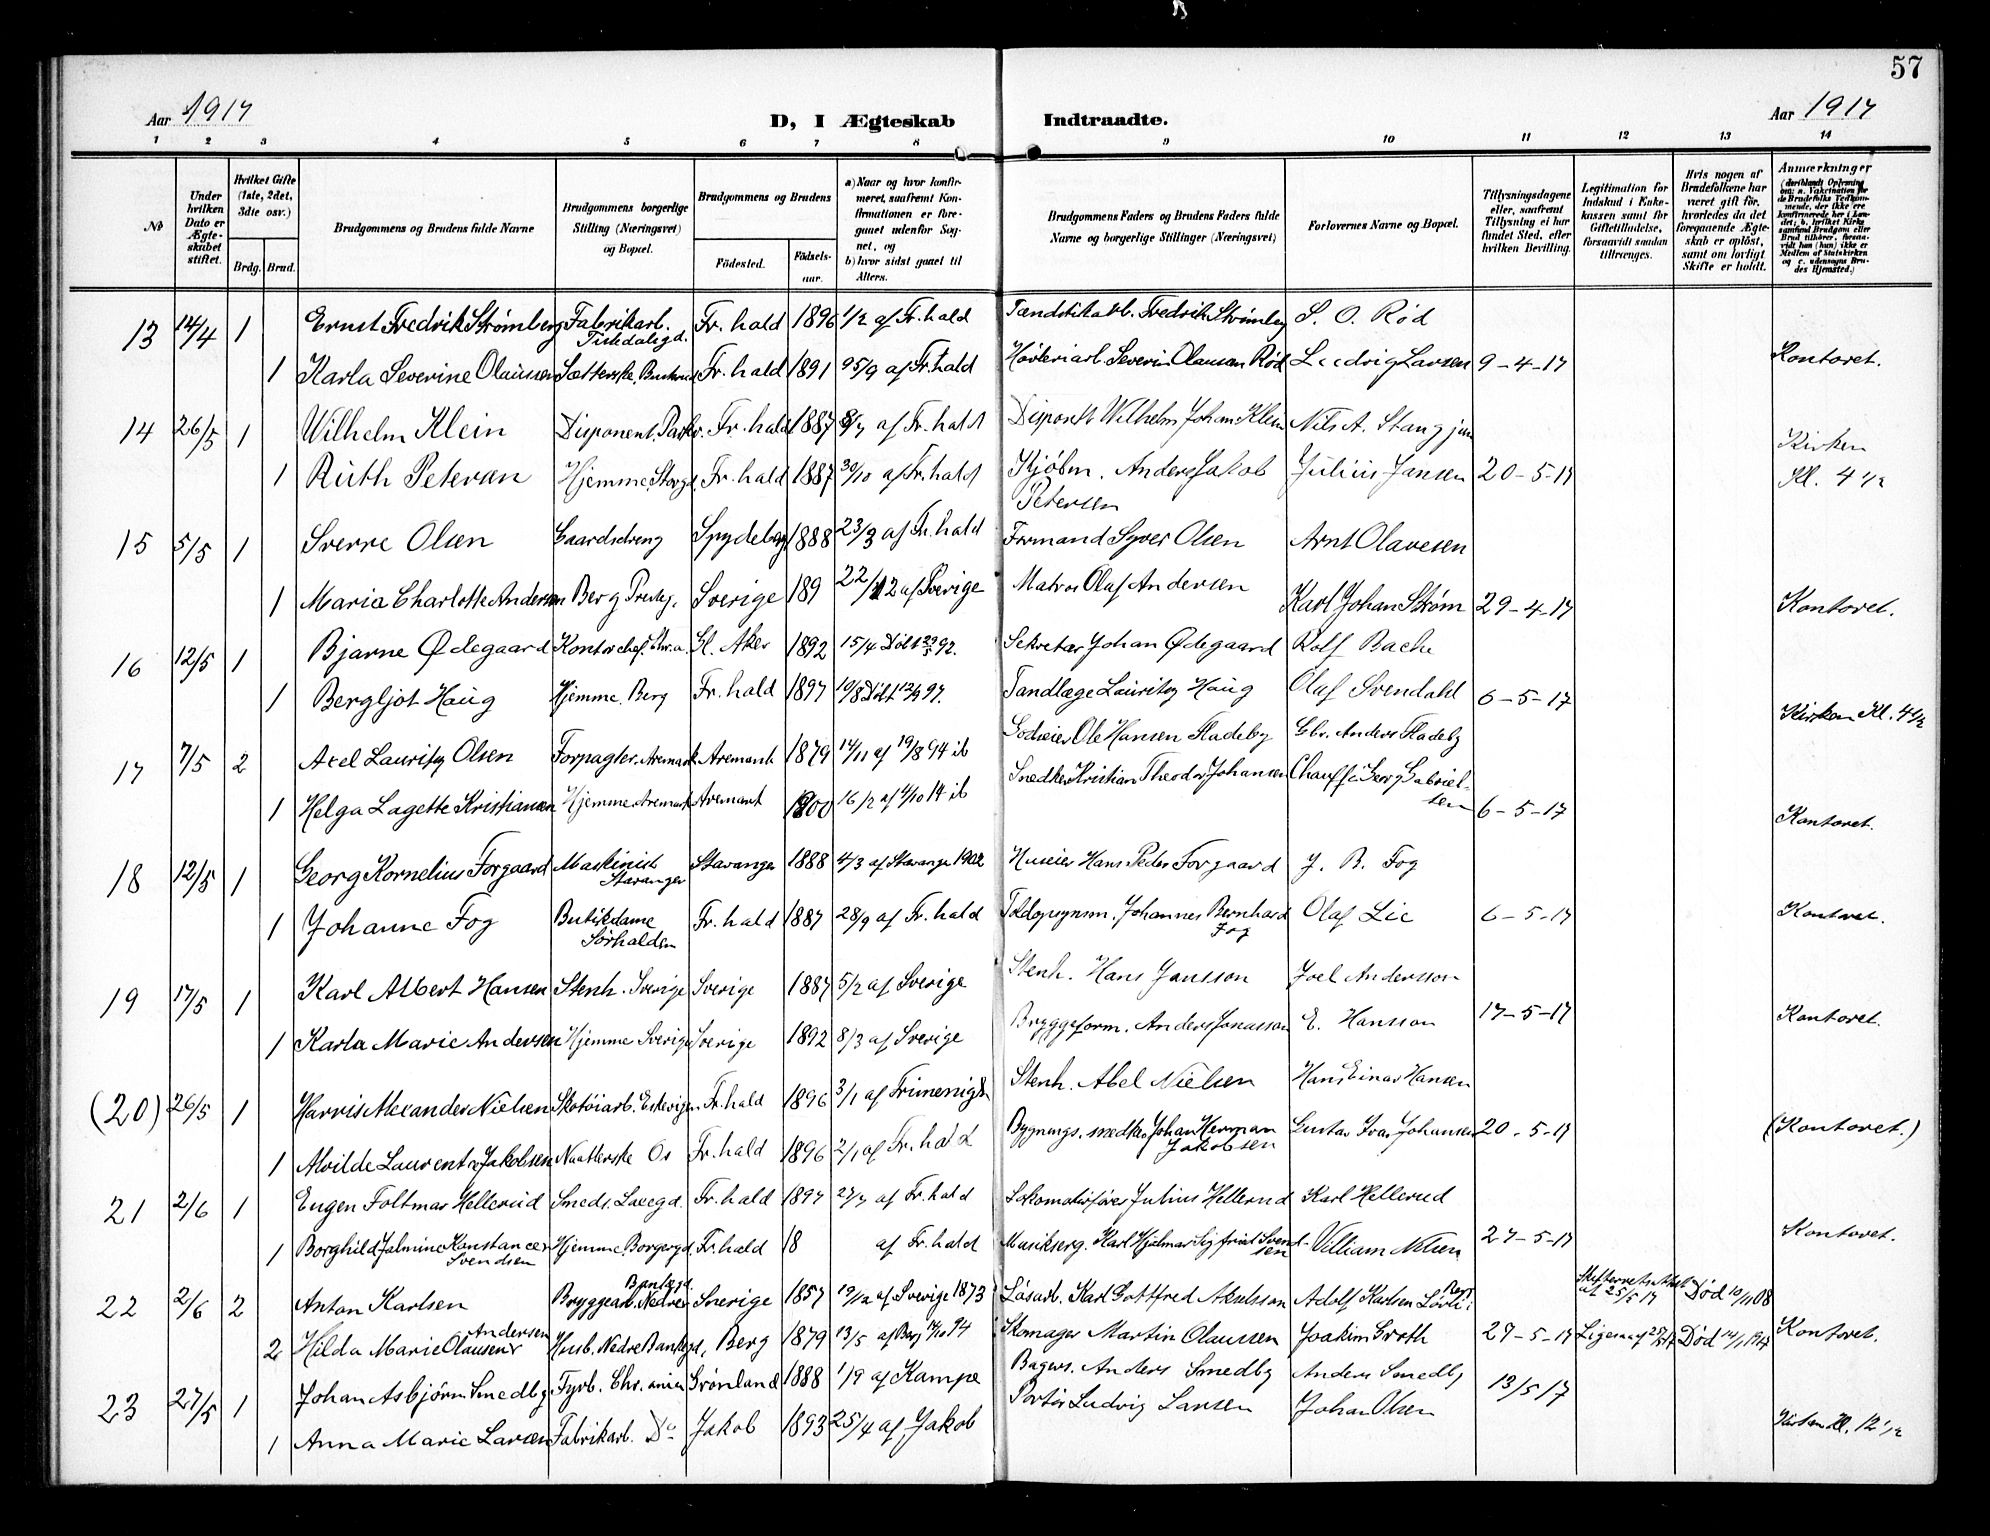 57
Aar 1917 D, I Ægteskab Indtraadte. Aar 1917
1 2 3 4 5 6 7 8 9 10 11 12 13 14
No
Under hvilken Dato er Ægteskabet stiftet.
Hvilket Gifte (1ste, 2det, 3die osv.)
Brdg. Brud.
Brudgommens og Brudens fulde Navne
Brudgommens borgerlige Stilling (Næringsvei) og Bopæl.
Brudgommens og Brudens
Födested. Födselsaar.
a) Naar og hvor konfirmeret, saafremt Konfirmationen er foregaaet udenfor Sognet, og
b) hvor sidst gaaet til Alters.
Brudgommens Faders og Brudens Faders fulde Navne og borgerlige Stillinger (Næringsvei)
Forlovernes Navne og Bopæl.
Tillysningsdagene eller, saafremt Tillysning ei har fundet Sted, efter hvilken Bevilling.
Legitimation for Indskud i Enkekassen samt for Giftetilladelse, forsaavidt saadan tiltrænges.
Hvis nogen af Brudefolkene har været gift för, hvorledes da det foregaaende Ægteskab er oplöst, samt om lovligt Skifte er holdt.
Anmærkninger
13 14/4 1 Ernst Fredrik Strømberg Fabrikarb. Tistedalsgd. Fr. hald 1896 1/2 af Fr. hald Tændstikarb. Fredrik Strømberg S. O. Rød
1 Karla Severine Olaussen Sætterske, Fr. hald 1891 af Fr. hald Høvleriarb. Severin Olaussen Rød Ludvig Larsen 9-4-17 Kontoret.
14 26/5 1 Wilhelm Klein Disponent, Parkv. Fr. hald 1887 8/7 af Fr. hald Disponent Wilhelm Johan Klein Nils A. Stang jun
1 Ruth Petersen Hjemme, Storgd. Fr. hald 1887 30/10 af Fr. hald Kjøbm. Anders Jakob Petersen Julius Jansen 20-5-17 Kirken Kl. 4 1/2
15 5/5 1 Sverre Olsen Gaardsdreng Spydeberg 1888 23/3 af Fr. hald Formand Syver Olsen Arnt Olavesen
1 Maria Charlotte Andersen Berg Presteg. Sverige 189 22/12 af Sverige Matros Olaf Andersen Karl Johan Strøm 29-4-17 Kontoret.
16 12/5 1 Bjarne Ødegaard Kontorchef, Chr.a. Gl. Aker 1892 15/4 Døbt 29/5 92. Sekretær Johan Ødegaard Rolf Bache
1 Bergljot Haug Hjemme, Berg Fr. hald 1897 10/8 Døbt 12/9 97. Tandlæge Lauritz Haug Olaf Svendahl 6-5-17 Kirken Kl. 4 1/2
17 7/5 2 Axel Lauritz Olsen Forpagter, Aremark Aremark 1879 14/11 af 19/8 94 ib Godseier Ole Hansen Fladeby Gbr. Anders Fladeby
1 Helga Lagette Kristiansen Hjemme, Aremark Aremark 1900 16/2 af 4/10 14 ib Snedker Kristian Theodor Johansen Chauffør Georg Gabrielsen 6-5-17 Kontoret.
18 12/5 1 Georg Kornelius Forgaard Maskinist Stavanger Stavanger 1888 4/3 af Stavanger 1902 Huseier Hans Peder Forgaard J. B. Fog
1 Johanne Fog Butikdame Sørhalden Fr. hald 1887 28/9 af Fr. hald Toldopsynsm. Johannes Bernhard Fog Olaf Lie 6-5-17 Kontoret.
19 17/5 1 Karl Albert Hansen Stenh. Sverige Sverige 1887 5/2 af Sverige Stenh. Hans Jansson Joel Andersson
1 Karla Marie Andersen Hjemme Sverige Sverige 1892 8/3 af Sverige Bryggeform. Anders Jonasson E. Hansson 17-5-17 Kontoret.
(20) 26/5 1 Harris Alexander Nielsen Skotøiarb. Fr. hald 1896 3/1 af Frimenigh. Stenh. Abel Nielsen Hans Einar Hansen
1 Alvilde Laurentze Jakobsen Naatlerske Os Fr. hald 1896 2/1 af Fr. hald Bygnings.snedker Johan Herman Jakobsen Gustav Ivar Johansen 20-5-17 (Kontoret.)
21 2/6 1 Eugen Foltmar Hellerud Smed. Fr. hald 1897 27/7 af Fr. hald Lokomotivfører Julius Hellerud Karl Hellerud
1 Borghild Jalmine Konstance Svendsen Hjemme, Borgergd. Fr. hald 18 af Fr. hald Musikserg. Karl Hjalmar Sigfried Svendsen William Nilsen 27-5-17 Kontoret.
22 2/6 2 Anton Karlsen Bryggearb. Nedre Bankegd. Sverige 1857 19/12 af Sverige 1873 Løsarb. Karl Gottfred Akselsson Adolf Karlsen Skifteretsattest af 25/5 17 Død 10/11 08
2 Hilda Marie Olausen Andersen Husb. Nedre Bankegd. Berg 1879 13/5 af Berg 14/10 94 Skomager Martin Olaussen Joakim Groth 27-5-17 Ligesaa af Død 14/1 1917 Kontoret.
23 27/5 1 Johan Asbjørn Smedby Fyrb. Chr.ania Grønland 1888 1/9 af Kampe Bagers. Anders Smedby Anders Smedby 13/5 17
1 Anna Marie Larsen Fabrikarb. Do Jakob 1893 25/4 af Jakob Portør Ludvig Larsen Johan Olsen Kirken Kl. 12 1/2